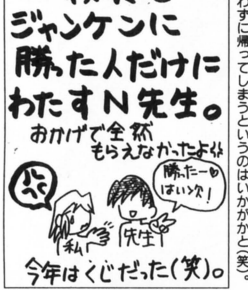 ジャンケンに
勝った人だけに
わたすN先生。
おかげで全然
もらえなかったよ
勝ったー♡
はい次!
私
先生
今年はくじだった(笑)。
わずに帰ってしまうというのはいかがかと(笑)。